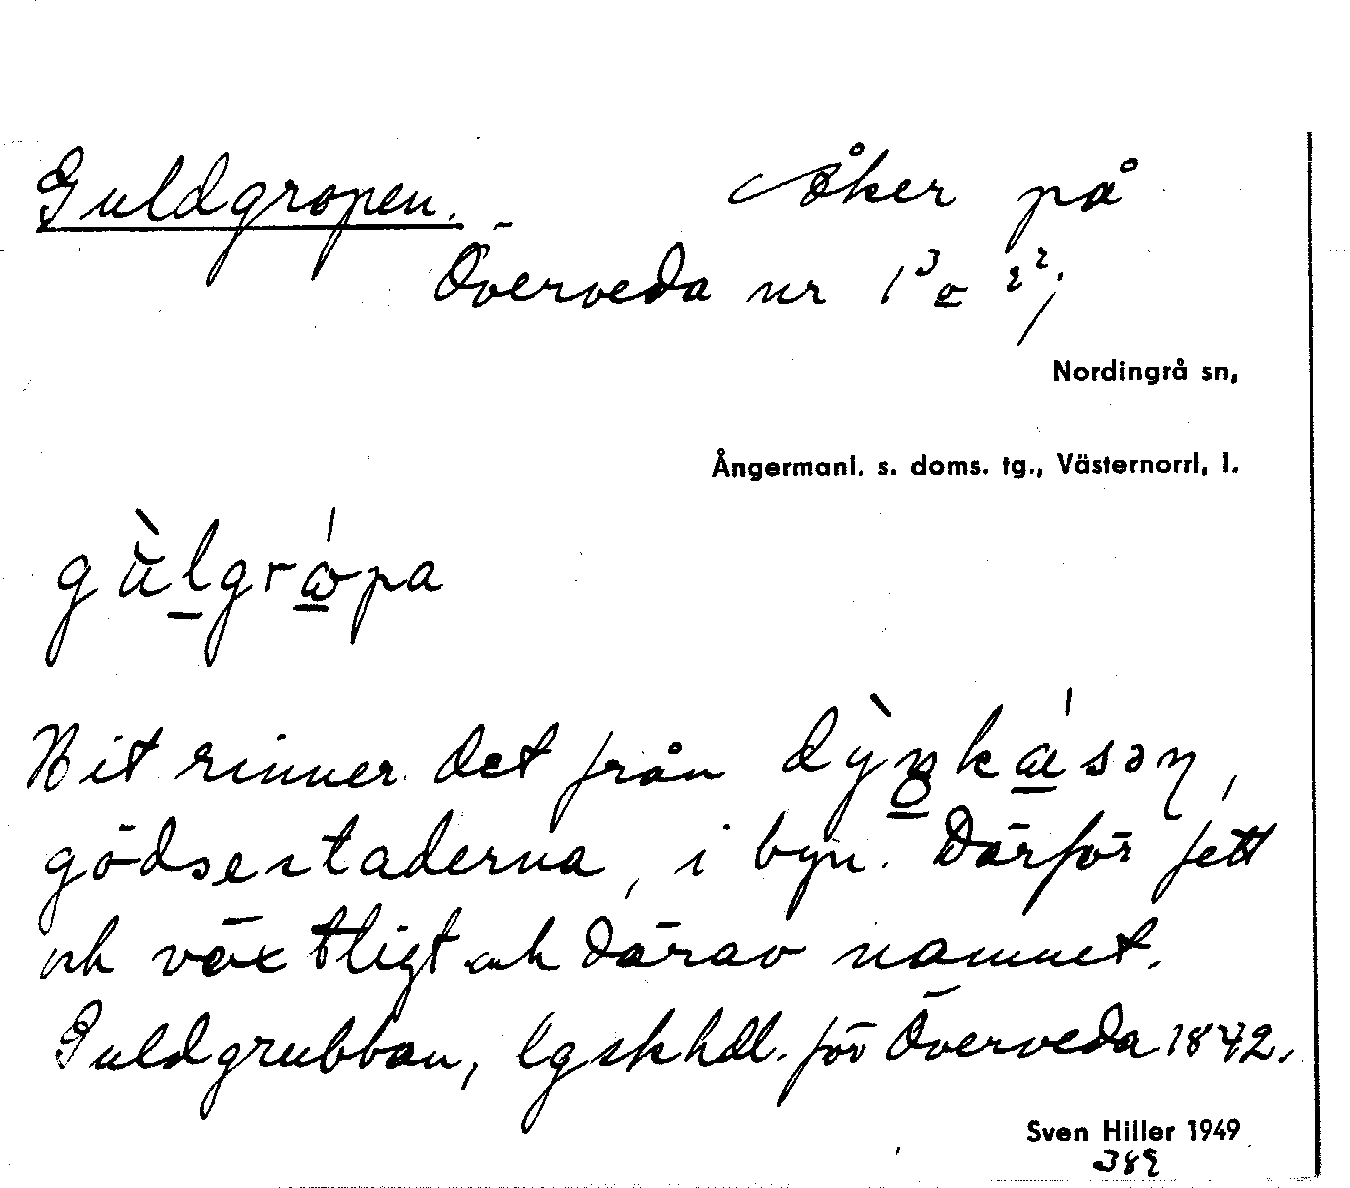 Guldgropen. Åker på
Överveda nr 1³ o 2²,
Nordingrå sn,
Ångermanl. s. doms. tg., Västernorrl, l.
gùlgrápa
Hit rinner det från dỳŋkásəņ,
gödselstaderna, i byn. Därför fett
och växtligt och därav namnet.
Guldgrubban, lgskhdl. för Överveda 1842.
Sven Hiller 1949
389